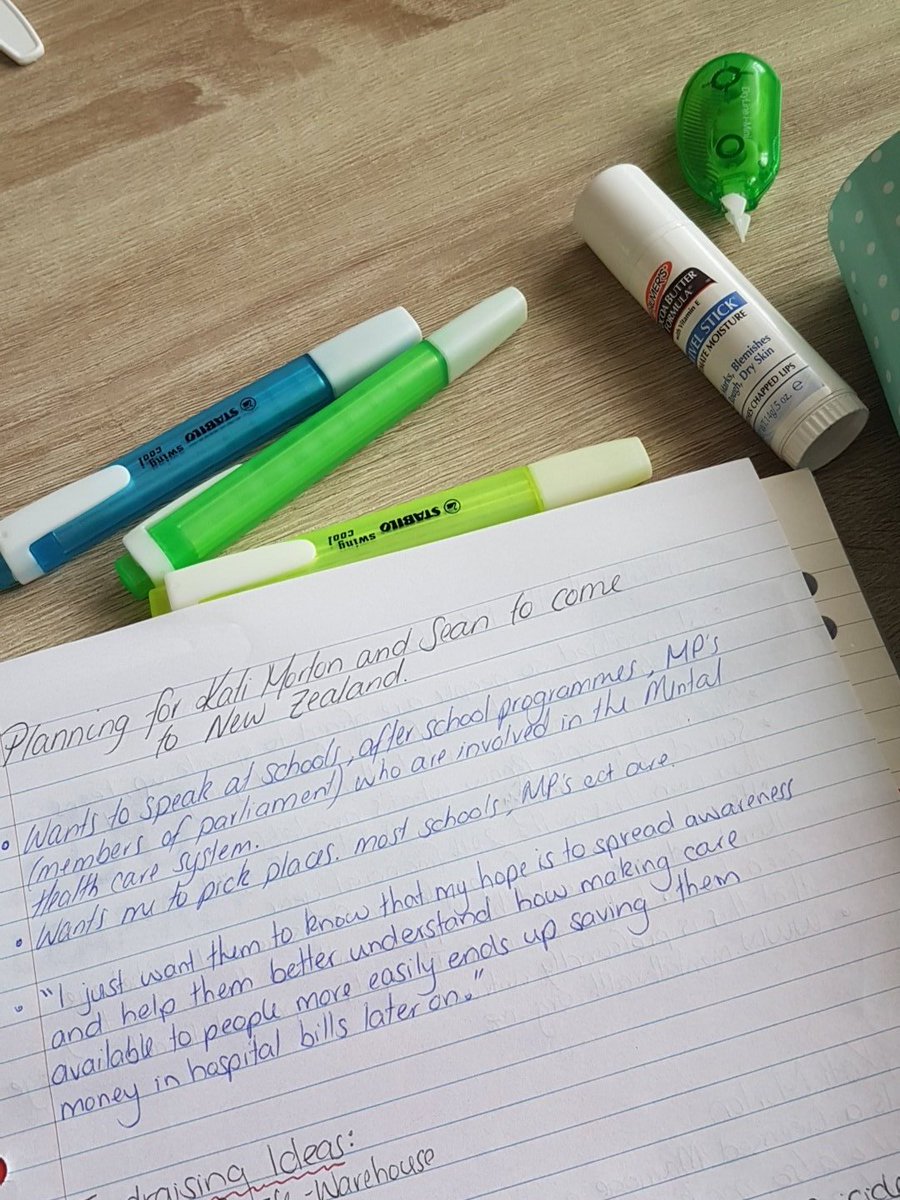 DryLine i-Mini
PALMER'S
COCOA BUTTER
FORMULA
with Vitamin E
MOISTURE
Marks, Blemishes
Dry Skin
CHAPPED LIPS
.5 oz. e
STABILO
swing
cool
STABILO
swing
cool
Planning for Kati Morton and Sean to come
to New Zealand.
• Wants to speak at schools, after school programmes, MP's
(members of parliament) who are involved in the Mental
Health care system.
• Wants me to pick places. most schools, MP's ect are.
• "I just want them to know that my hope is to spread awareness
and help them better understand how making care
available to people more easily ends up saving them
money in hospital bills later on."
Ideas:
-Warehouse